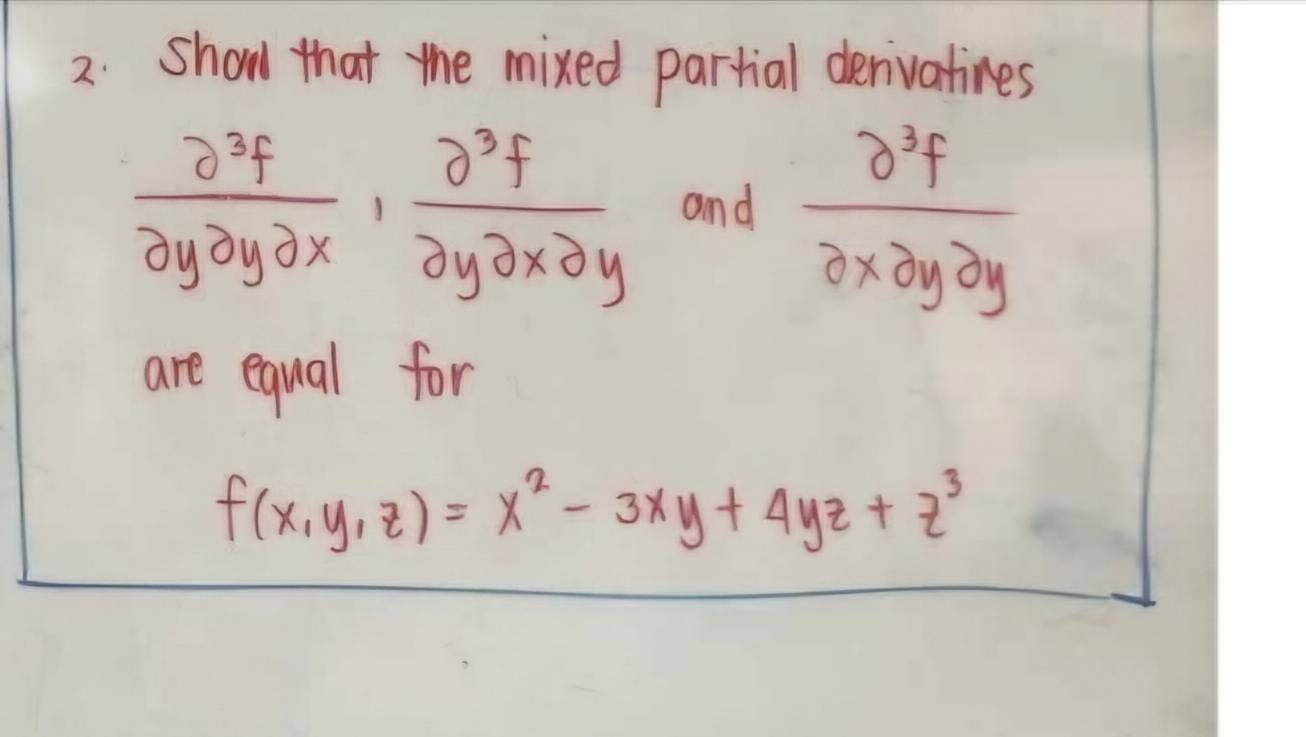 2. Show that the mixed partial derivatives
∂³f/∂y∂y∂x , ∂³f/∂y∂x∂y and ∂³f/∂x∂y∂y
are equal for
f(x,y,z) = x² - 3xy + 4yz + z³